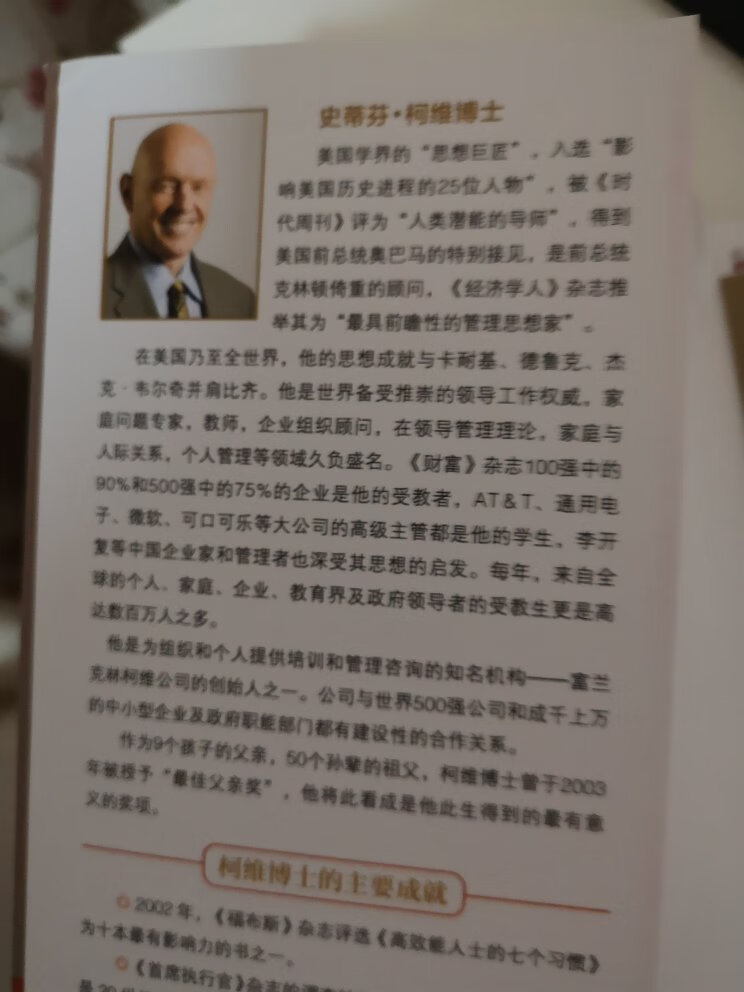 史蒂芬·柯维博士
美国学界的“思想巨匠”，入选“影
响美国历史进程的25位人物”，被《时
代周刊》评为“人类潜能的导师”，得到
美国前总统奥巴马的特别接见，是前总统
克林顿倚重的顾问，《经济学人》杂志推
举其为“最具前瞻性的管理思想家”。
在美国乃至全世界，他的思想成就与卡耐基、德鲁克、杰
克·韦尔奇并肩比齐。他是世界备受推崇的领导工作权威，家
庭问题专家，教师，企业组织顾问，在领导管理理论，家庭与
人际关系，个人管理等领域久负盛名。《财富》杂志100强中的
90%和500强中的75%的企业是他的受教者，AT&T、通用电
子、微软、可口可乐等大公司的高级主管都是他的学生，李开
复等中国企业家和管理者也深受其思想的启发。每年，来自全
球的个人、家庭、企业、教育界及政府领导者的受教生更是高
达数百万人之多。
他是为组织和个人提供培训和管理咨询的知名机构——富兰
克林柯维公司的创始人之一。公司与世界500强公司和成千上万
的中小型企业及政府职能部门都有建设性的合作关系。
作为9个孩子的父亲，50个孙辈的祖父，柯维博士曾于2003
年被授予“最佳父亲奖”，他将此看成是他此生得到的最有意
义的奖项。
柯维博士的主要成就
2002年，《福布斯》杂志评选《高效能人士的七个习惯》
为十本最有影响力的书之一。
《首席执行官》杂志的调查
是20世